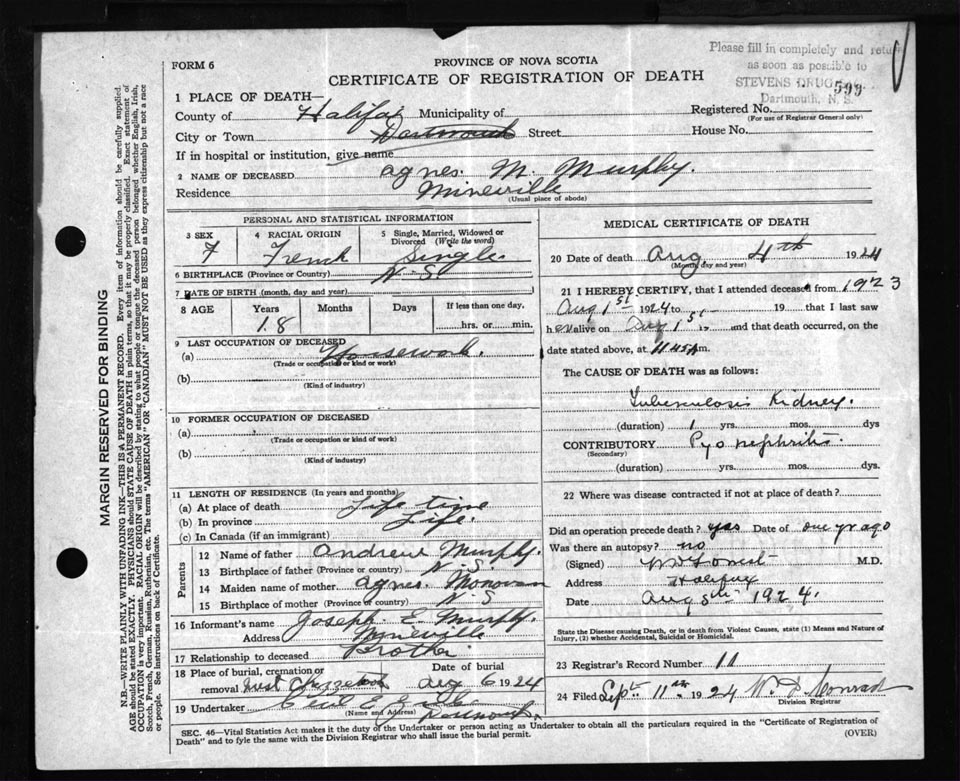 Please fill in completely and return
as soon as possible to
STEVENS DRUG
Dartmouth, N. S.
599
FORM 6
PROVINCE OF NOVA SCOTIA
CERTIFICATE OF REGISTRATION OF DEATH
1 PLACE OF DEATH—
County of Halifax Municipality of
Registered No.
(For use of Registrar General only)
City or Town Dartmouth Street House No.
If in hospital or institution, give name
2 NAME OF DECEASED Agnes. M. Murphy.
Residence Mineville
(Usual place of abode)
PERSONAL AND STATISTICAL INFORMATION
3 SEX F
4 RACIAL ORIGIN French
5 Single, Married, Widowed or Divorced (Write the word) Single
6 BIRTHPLACE (Province or Country) N-S
7 DATE OF BIRTH (month, day and year)
8 AGE Years 18 Months Days If less than one day, hrs. or min.
9 LAST OCCUPATION OF DECEASED
(a) Housework.
(Trade or occupation or kind or work)
(b)
(Kind of industry)
10 FORMER OCCUPATION OF DECEASED
(a)
(Trade or occupation or kind of work)
(b)
(Kind of industry)
11 LENGTH OF RESIDENCE (In years and months)
(a) At place of death Life time
(b) In province Life.
(c) In Canada (if an immigrant)
Parents
12 Name of father Andrew Murphy.
13 Birthplace of father (Province or country) N-S.
14 Maiden name of mother Agnes Monovan
15 Birthplace of mother (Province or country) N-S
16 Informant's name Joseph. E. Murphy.
Address Mineville
17 Relationship to deceased Brother
18 Place of burial, cremation or removal West Chezzetcook
Date of burial Aug 6 1924
19 Undertaker Cecil E.
(Name and Address) Dartmouth.
MEDICAL CERTIFICATE OF DEATH
20 Date of death Aug 4th 1924
(Month, day and year)
21 I HEREBY CERTIFY, that I attended deceased from 1923
Aug 1st 1924 to 19 that I last saw
h er alive on Aug 1st 19 and that death occurred, on
date stated above, at 11 45 A m.
The CAUSE OF DEATH was as follows:
Tuberculosis Kidney.
(duration) 1 yrs. mos. dys
CONTRIBUTORY Pyo nephritis.
(Secondary)
(duration) yrs. mos. dys.
22 Where was disease contracted if not at place of death?
Did an operation precede death? yes Date of one yr ago
Was there an autopsy? no
(Signed) M.D.
Address Halifax
Date Aug 5th 1924.
State the Disease causing Death, or in death from Violent Causes, state (1) Means and Nature of Injury, (2) whether Accidental, Suicidal or Homicidal.
23 Registrar's Record Number 11
24 Filed Sept. 11th 1924 W. D. Conrad
Division Registrar
SEC. 46—Vital Statistics Act makes it the duty of the Undertaker or person acting as Undertaker to obtain all the particulars required in the "Certificate of Registration of
Death" and to fyle the same with the Division Registrar who shall issue the burial permit.
(OVER)
MARGIN RESERVED FOR BINDING
N.B.—WRITE PLAINLY WITH UNFADING INK—THIS IS A PERMANENT RECORD. Every item of information should be carefully supplied.
AGE should be stated EXACTLY. PHYSICIANS should STATE CAUSE OF DEATH in plain terms, so that it may be properly classified. Exact statement of
OCCUPATION is very important. RACIAL ORIGIN will be described by stating to what people or tongue the deceased person belonged whether English, Irish,
Scotch, French, German, Russian, Ruthenian, etc. The terms "AMERICAN" OR "CANADIAN" MUST NOT BE USED as they express citizenship but not a race
or people. See instructions on back of Certificate.